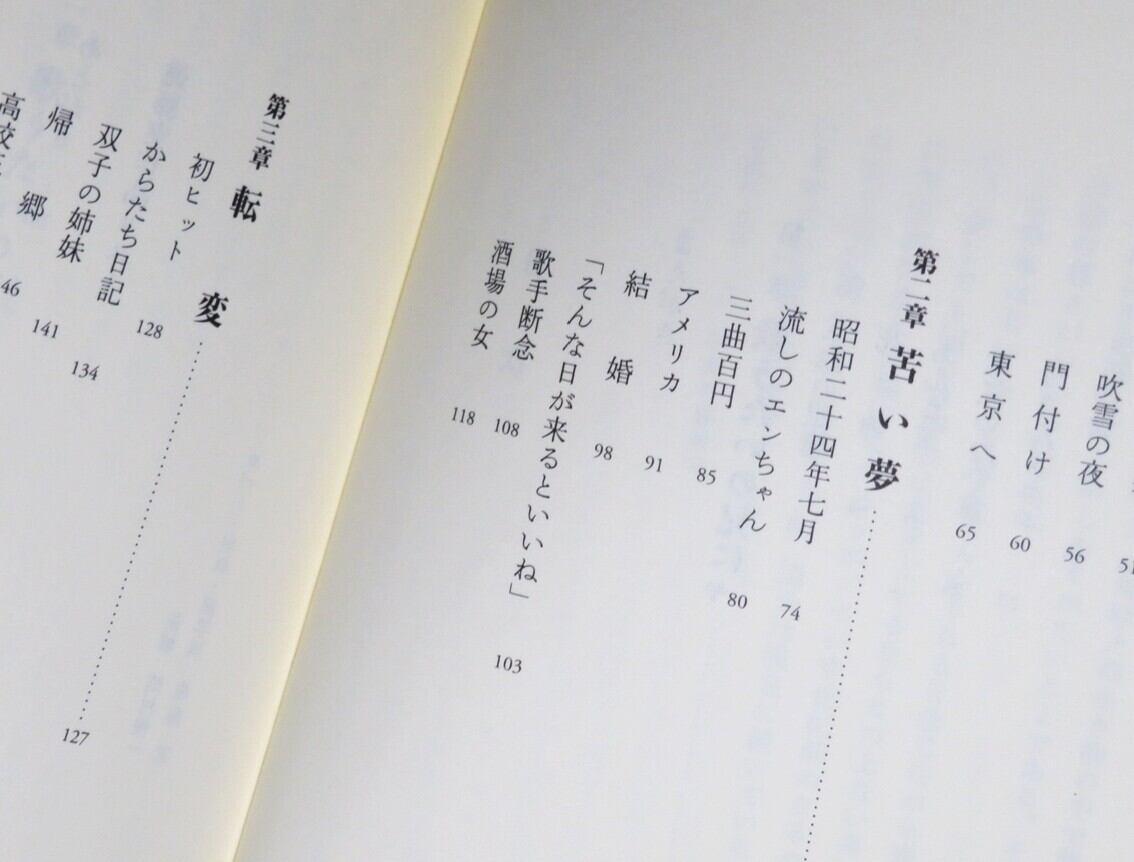 吹雪の夜 56
門付け 60
東京へ 65
第二章 苦い夢
昭和二十四年七月 74
流しのエンちゃん 80
三曲百円 85
アメリカ 91
結婚 98
「そんな日が来るといいね」 103
歌手断念 108
酒場の女 118
第三章 転変 127
初ヒット 128
からたち日記 134
双子の姉妹 141
帰郷 146
高校